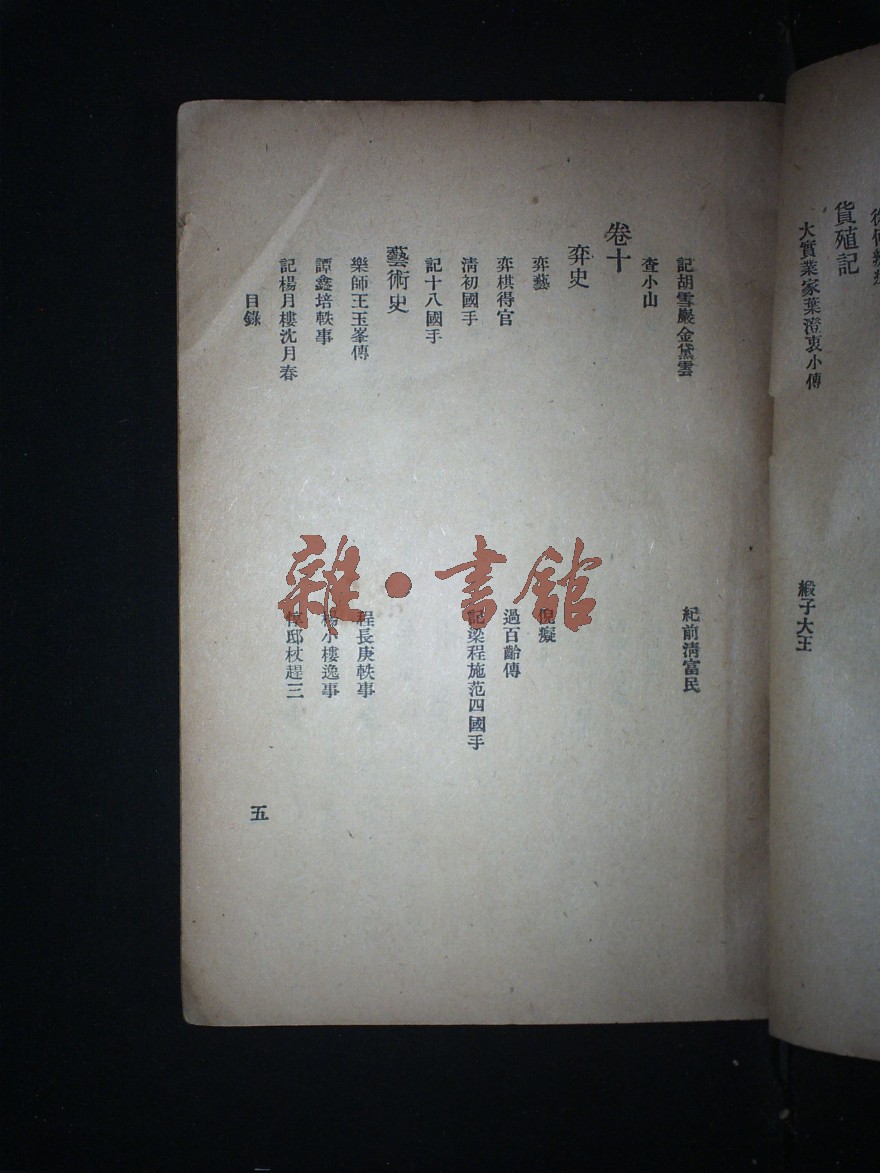 貨殖記
大實業家葉澄衷小傳
緞子大王
記胡雪巖金黛雲
紀前淸富民
查小山
卷十
弈史
弈藝
倪癡
弈棋得官
過百齡傳
淸初國手
記梁程施范四國手
記十八國手
藝術史
樂師王玉峯傳
程長庚軼事
譚鑫培軼事
楊小樓逸事
記楊月樓沈月春
邸杖趕三
目錄
五
雜·書館